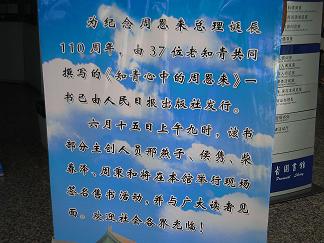 为纪念周恩来总理诞辰
110周年，由37位老知青共同
撰写的《知青心中的周恩来》一
书已由人民日报出版社发行。
六月十五日上午九时，该书
部分主创人员邢燕子、侯隽、柴
春泽、周秉和将在本馆举行现场
签名售书活动，并与广大读者见
面。欢迎社会各界光临！
省图书馆
Provincial Library